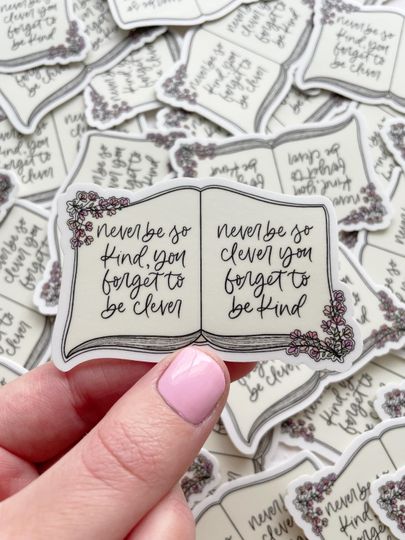 never be so
kind, you
forget to
be clever
never be so
clever you
forget to
be kind